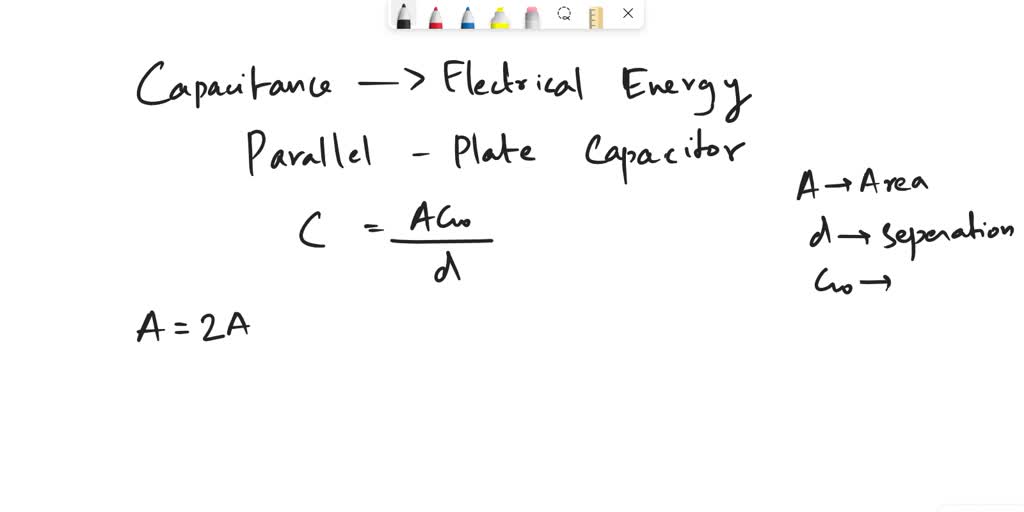 Capacitance → Electrical Energy
Parallel - Plate Capacitor
C = Aε₀ / d
A → Area
d → seperation
ε₀ →
A = 2A